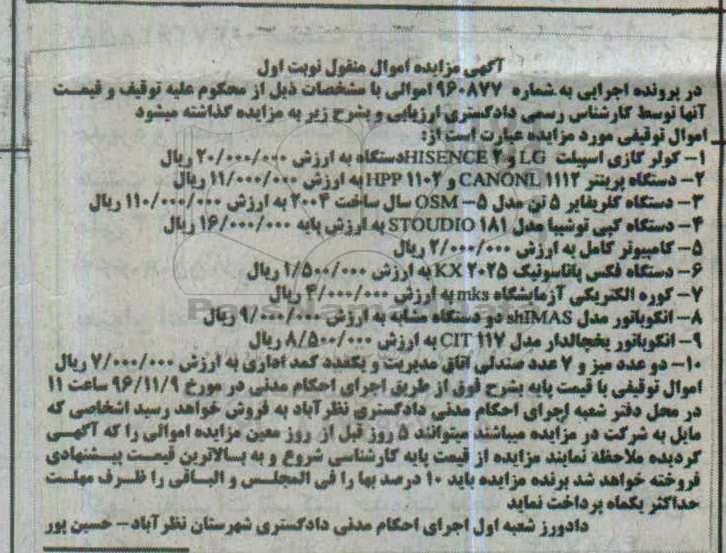 آگهی مزایده اموال منقول نوبت اول
در پرونده اجرایی به شماره ۹۶۰۸۷۷ اموالی با مشخصات ذیل از محکوم علیه توقیف و قیمت
آنها توسط کارشناس رسمی دادگستری ارزیابی و بشرح زیر به مزایده گذاشته میشود
اموال توقیفی مورد مزایده عبارت است از:
۱- کولر گازی اسپیلت LG و HISENCE ۲دستگاه به ارزش ۲۰/۰۰۰/۰۰۰ ریال
۲- دستگاه پرینتر CANONL ۱۱۱۲ و HPP ۱۱۰۲ به ارزش ۱۱/۰۰۰/۰۰۰ ریال
۳- دستگاه کلریفایر ۵ تن مدل OSM -۵ سال ساخت ۲۰۰۴ به ارزش ۱۱۰/۰۰۰/۰۰۰ ریال
۴- دستگاه کپی توشیبا مدل STOUDIO ۱۸۱ به ارزش پایه ۱۶/۰۰۰/۰۰۰ ریال
۵- کامپیوتر کامل به ارزش ۲/۰۰۰/۰۰۰ ریال
۶- دستگاه فکس پاناسونیک KX ۲۰۲۵ به ارزش ۱/۵۰۰/۰۰۰ ریال
۷- کوره الکتریکی آزمایشگاه mks به ارزش ۴/۰۰۰/۰۰۰ ریال
۸- انکوباتور مدل shIMAS دو دستگاه مشابه به ارزش ۹/۰۰۰/۰۰۰ ریال
۹- انکوباتور یخچالدار مدل CIT ۱۱۷ به ارزش ۸/۵۰۰/۰۰۰ ریال
۱۰- دو عدد میز و ۷ عدد صندلی اتاق مدیریت و یکعدد کمد اداری به ارزش ۷/۰۰۰/۰۰۰ ریال
اموال توقیفی با قیمت پایه بشرح فوق از طریق اجرای احکام مدنی در مورخ ۹۶/۱۱/۹ ساعت ۱۱
در محل دفتر شعبه اجرای احکام مدنی دادگستری نظرآباد به فروش خواهد رسید اشخاصی که
مایل به شرکت در مزایده میباشند میتوانند ۵ روز قبل از روز معین مزایده اموالی را که آگهی
گردیده ملاحظه نمایند مزایده از قیمت پایه کارشناسی شروع و به بالاترین قیمت پیشنهادی
فروخته خواهد شد برنده مزایده باید ۱۰ درصد بها را فی المجلس و الباقی را ظرف مهلت
حداکثر یکماه پرداخت نماید
دادورز شعبه اول اجرای احکام مدنی دادگستری شهرستان نظرآباد- حسین پور